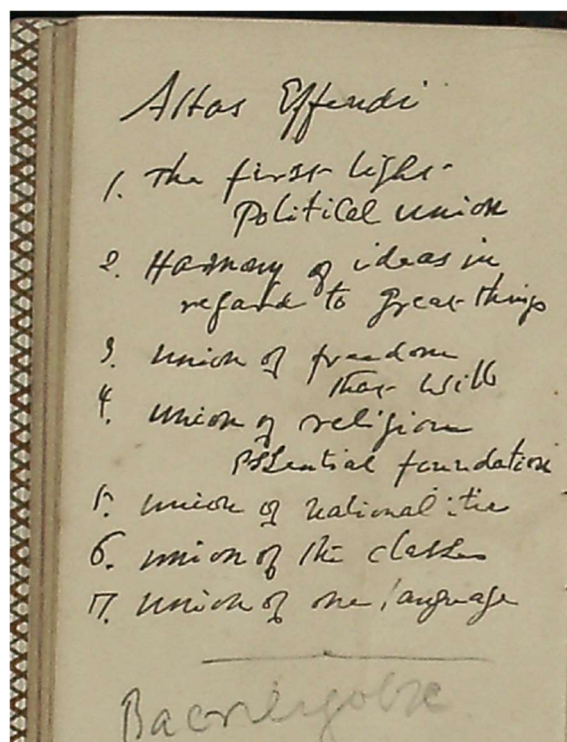 Abbas Effendi
1. The first light
Political union
2. Harmony of ideas in
regard to great things
3. union of freedom
that will
4. union of religion
essential foundation
5. union of nationalitie
6. union of the classes
7. union of one language